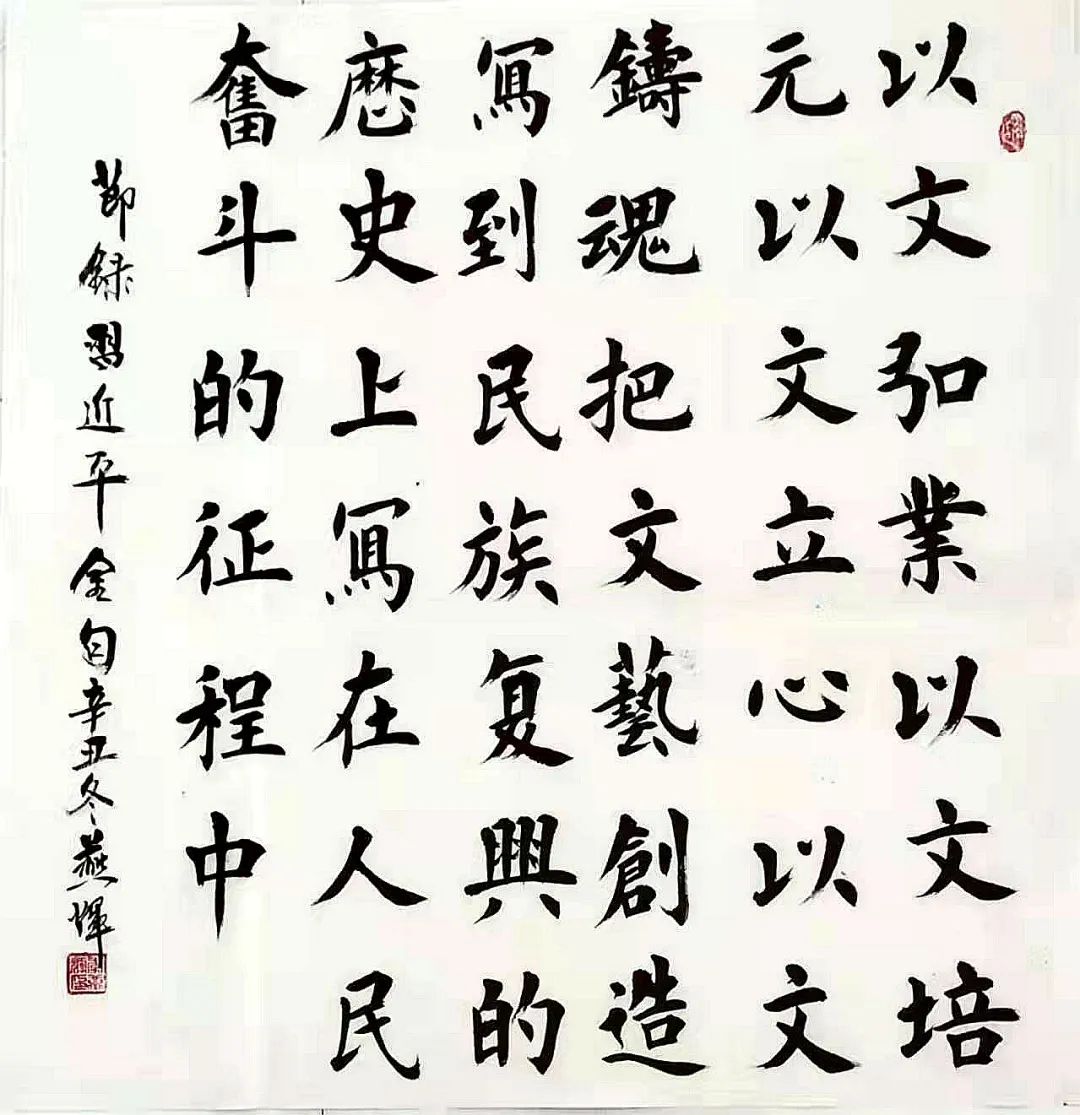 以文弘業以文培
元以文立心以文
鑄魂把文藝創造
寫到民族复興的
歷史上寫在人民
奮斗的征程中
節録習近平金句辛丑冬燕暉